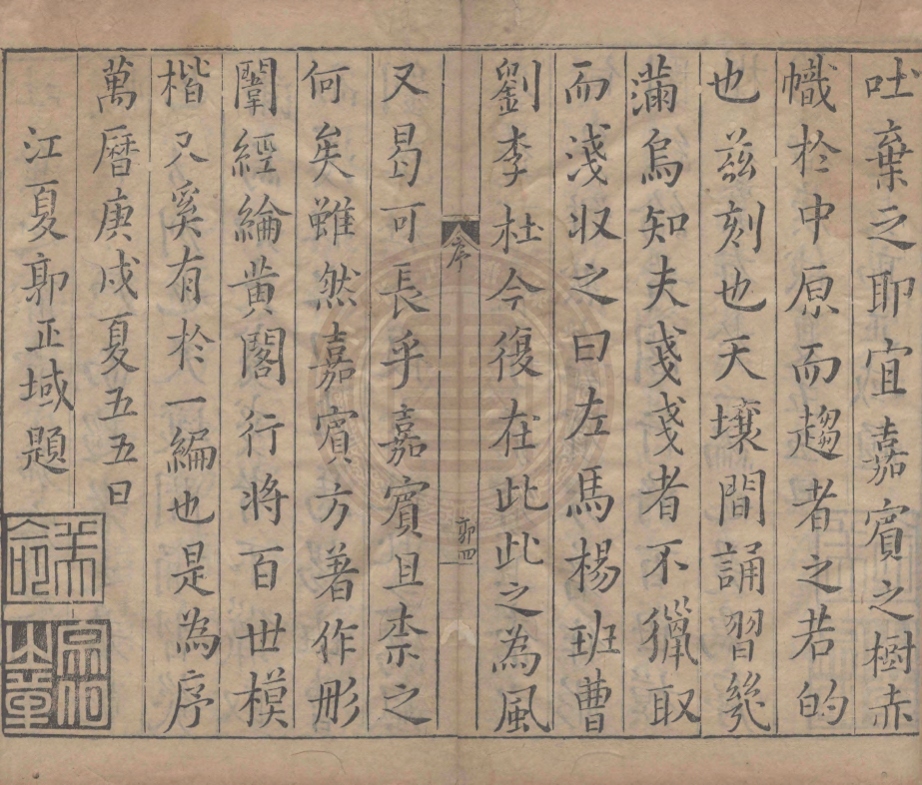 吐棄之耶宜嘉賓之樹赤
幟於中原而趨者之若的
也茲刻也天壤間誦習幾
滿烏知夫戔戔者不獵取
而淺収之曰左馬楊班曹
劉李杜今復在此此之為風
序
郭四
又曷可長乎嘉賓且柰之
何矣雖然嘉賓方著作彤
闈經綸黄閣行將百世模
楷只奚有於一編也是為序
萬曆庚戌夏五五日
江夏郭正域題